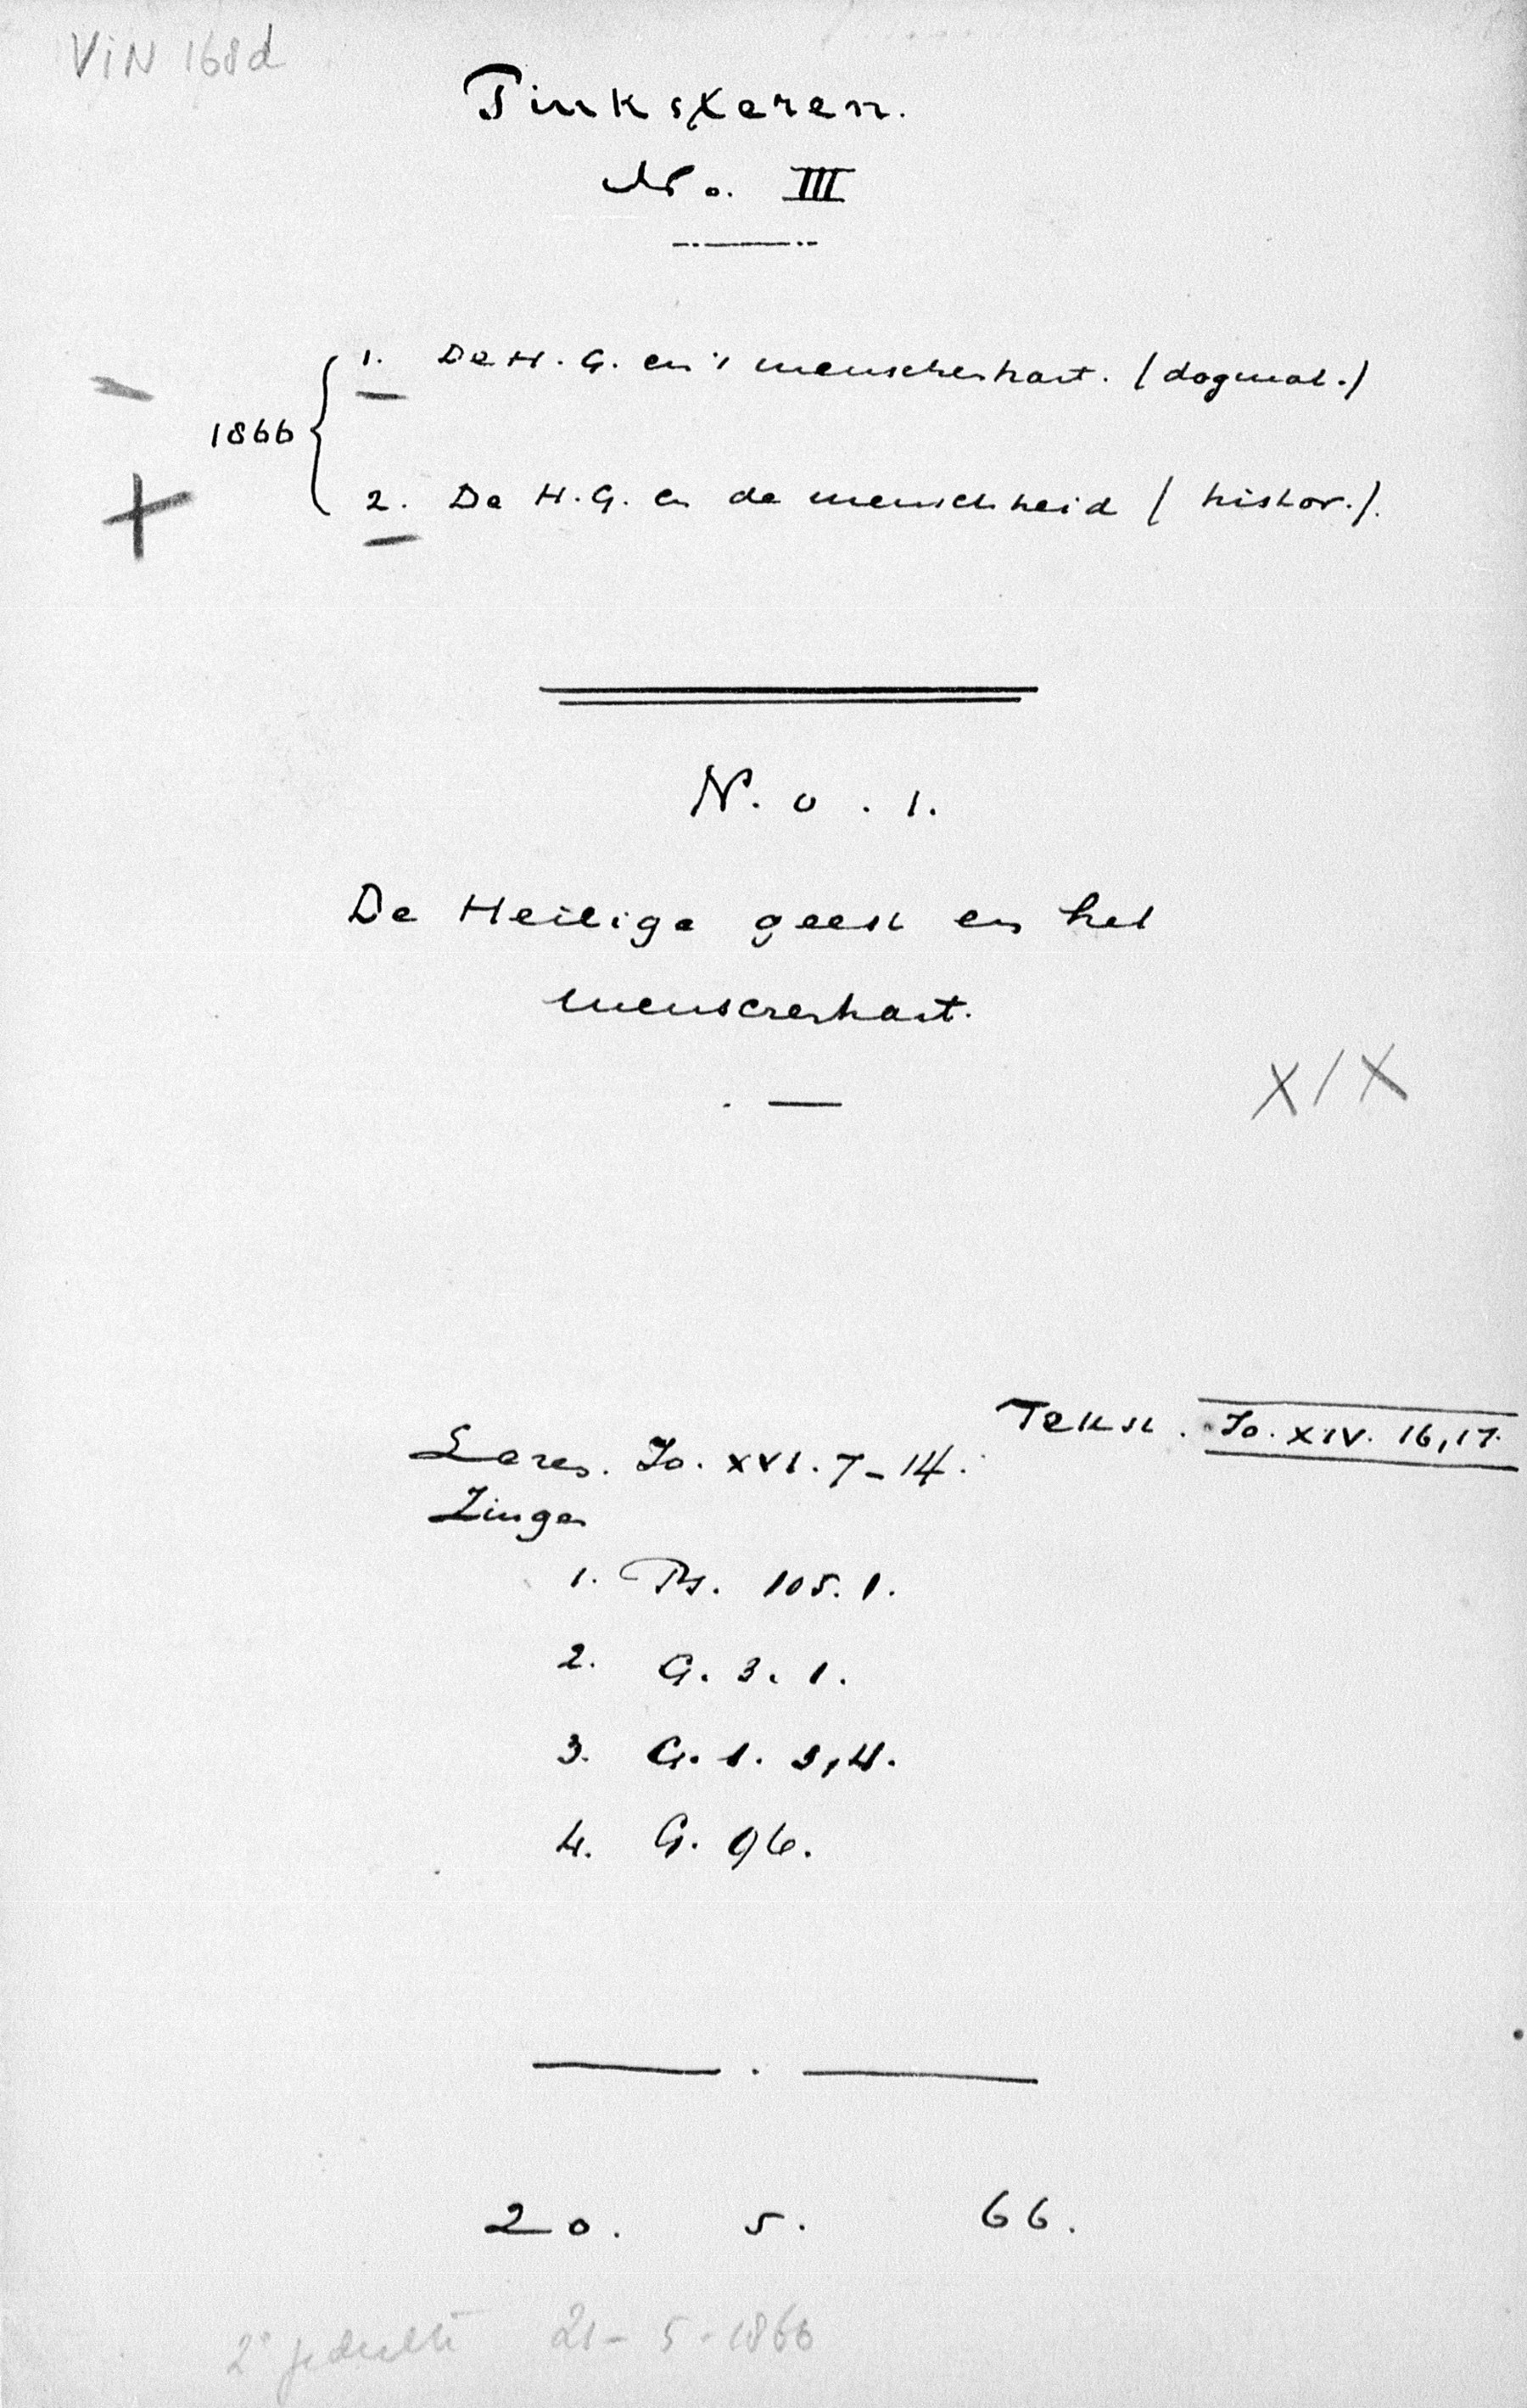 VIN 168d
Pinksteren.
No. III
1. De H. G. en 't menschenhart. (dogmat.)
1866
2. De H. G. en de menschheid (histor.).
N. o. 1.
De Heilige geest en het
menschenhart.
X/X
Tekst. Jo. XIV. 16, 17.
Lezen. Jo. XVI. 7-14.
Zingen
1. Ps. 105. 1.
2. G. 3. 1.
3. G. 1. 3,4.
4. G. 96.
20. 5. 66.
2e gedeelte 21-5-1866